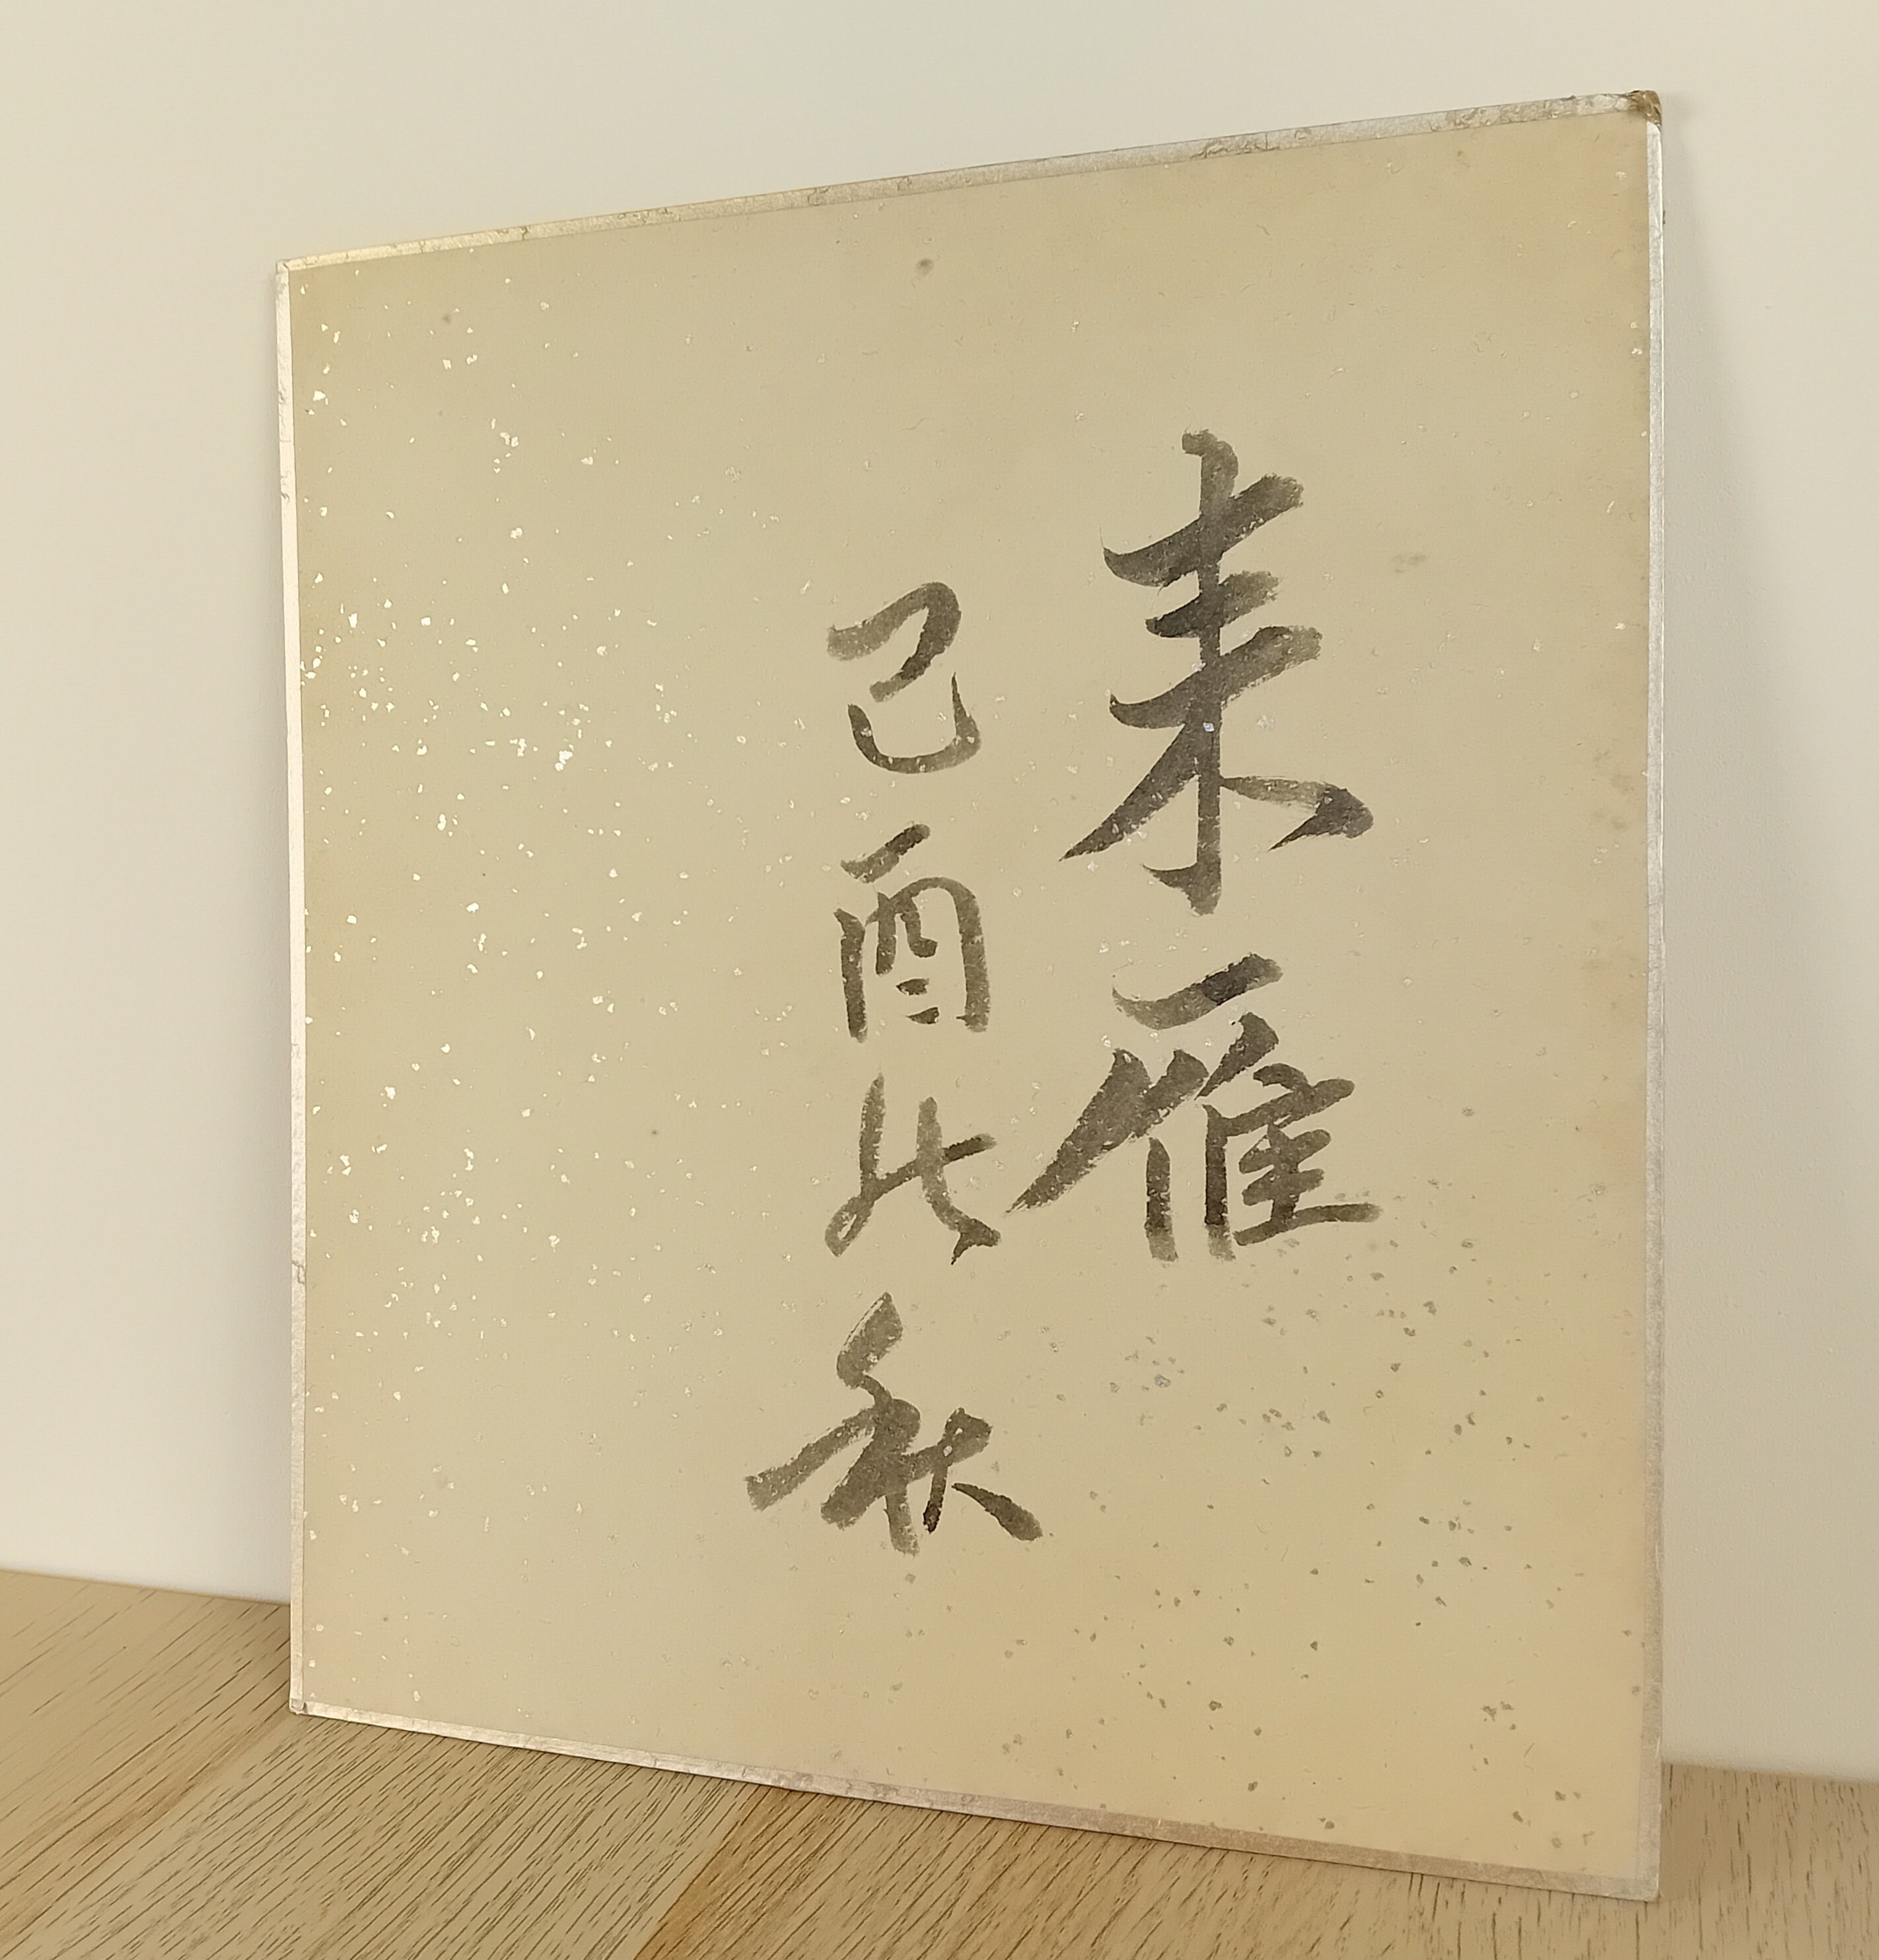 来雁
己酉秋